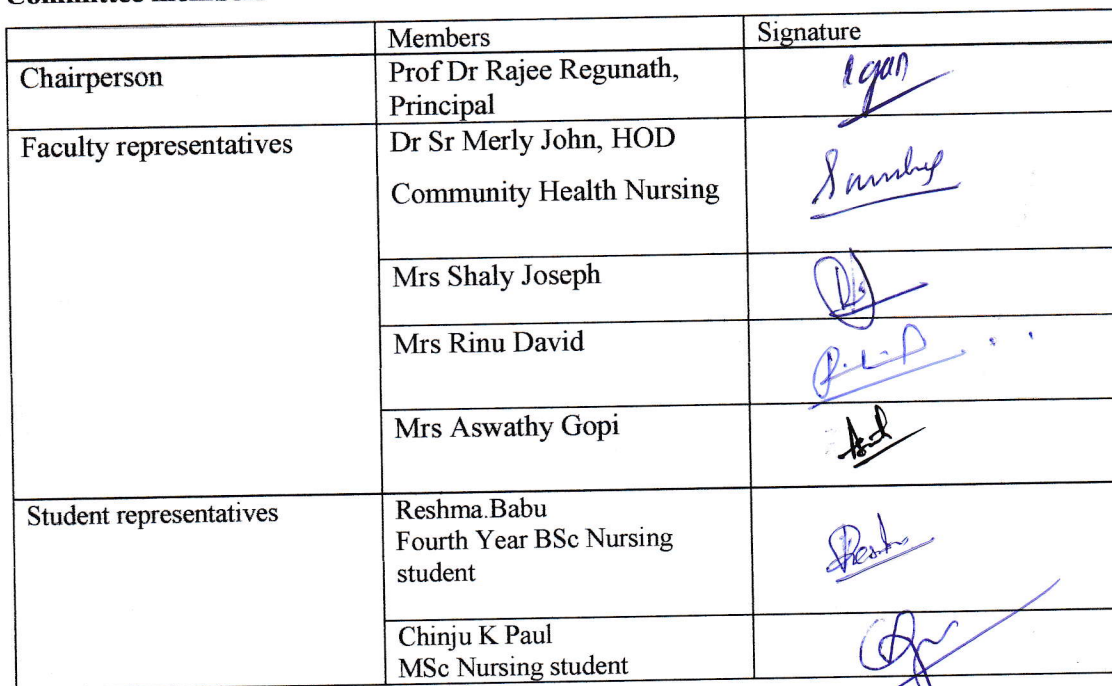 Members Signature
Chairperson Prof Dr Rajee Regunath,
Principal
Faculty representatives Dr Sr Merly John, HOD
Community Health Nursing
Mrs Shaly Joseph
Mrs Rinu David
Mrs Aswathy Gopi
Student representatives Reshma.Babu
Fourth Year BSc Nursing
student
Chinju K Paul
MSc Nursing student